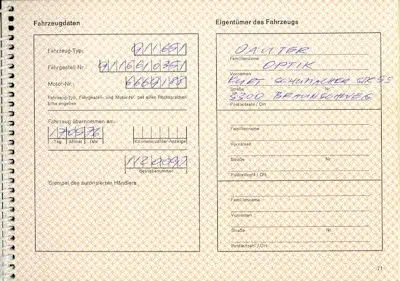 Fahrzeugdaten
Fahrzeug-Typ:
Fahrgestell-Nr.
Motor-Nr.
Fahrzeug-Typ, Fahrgestell- und Motor-Nr. bei allen Rückfragen
bitte angeben
Fahrzeug übernommen am:
Tag Monat Jahr
Kilometerzähler-Anzeige
Betriebsnummer
Stempel des autorisierten Händlers
Eigentümer des Fahrzeugs
Familienname
OPTIK
Vorname
KURT SCHUMACHER STR
Straße Nr.
3300 BRAUNSCHWEIG
Postleitzahl / Ort
Familienname
Vorname
Straße Nr.
Postleitzahl / Ort
Familienname
Vorname
Straße Nr.
Postleitzahl / Ort
71